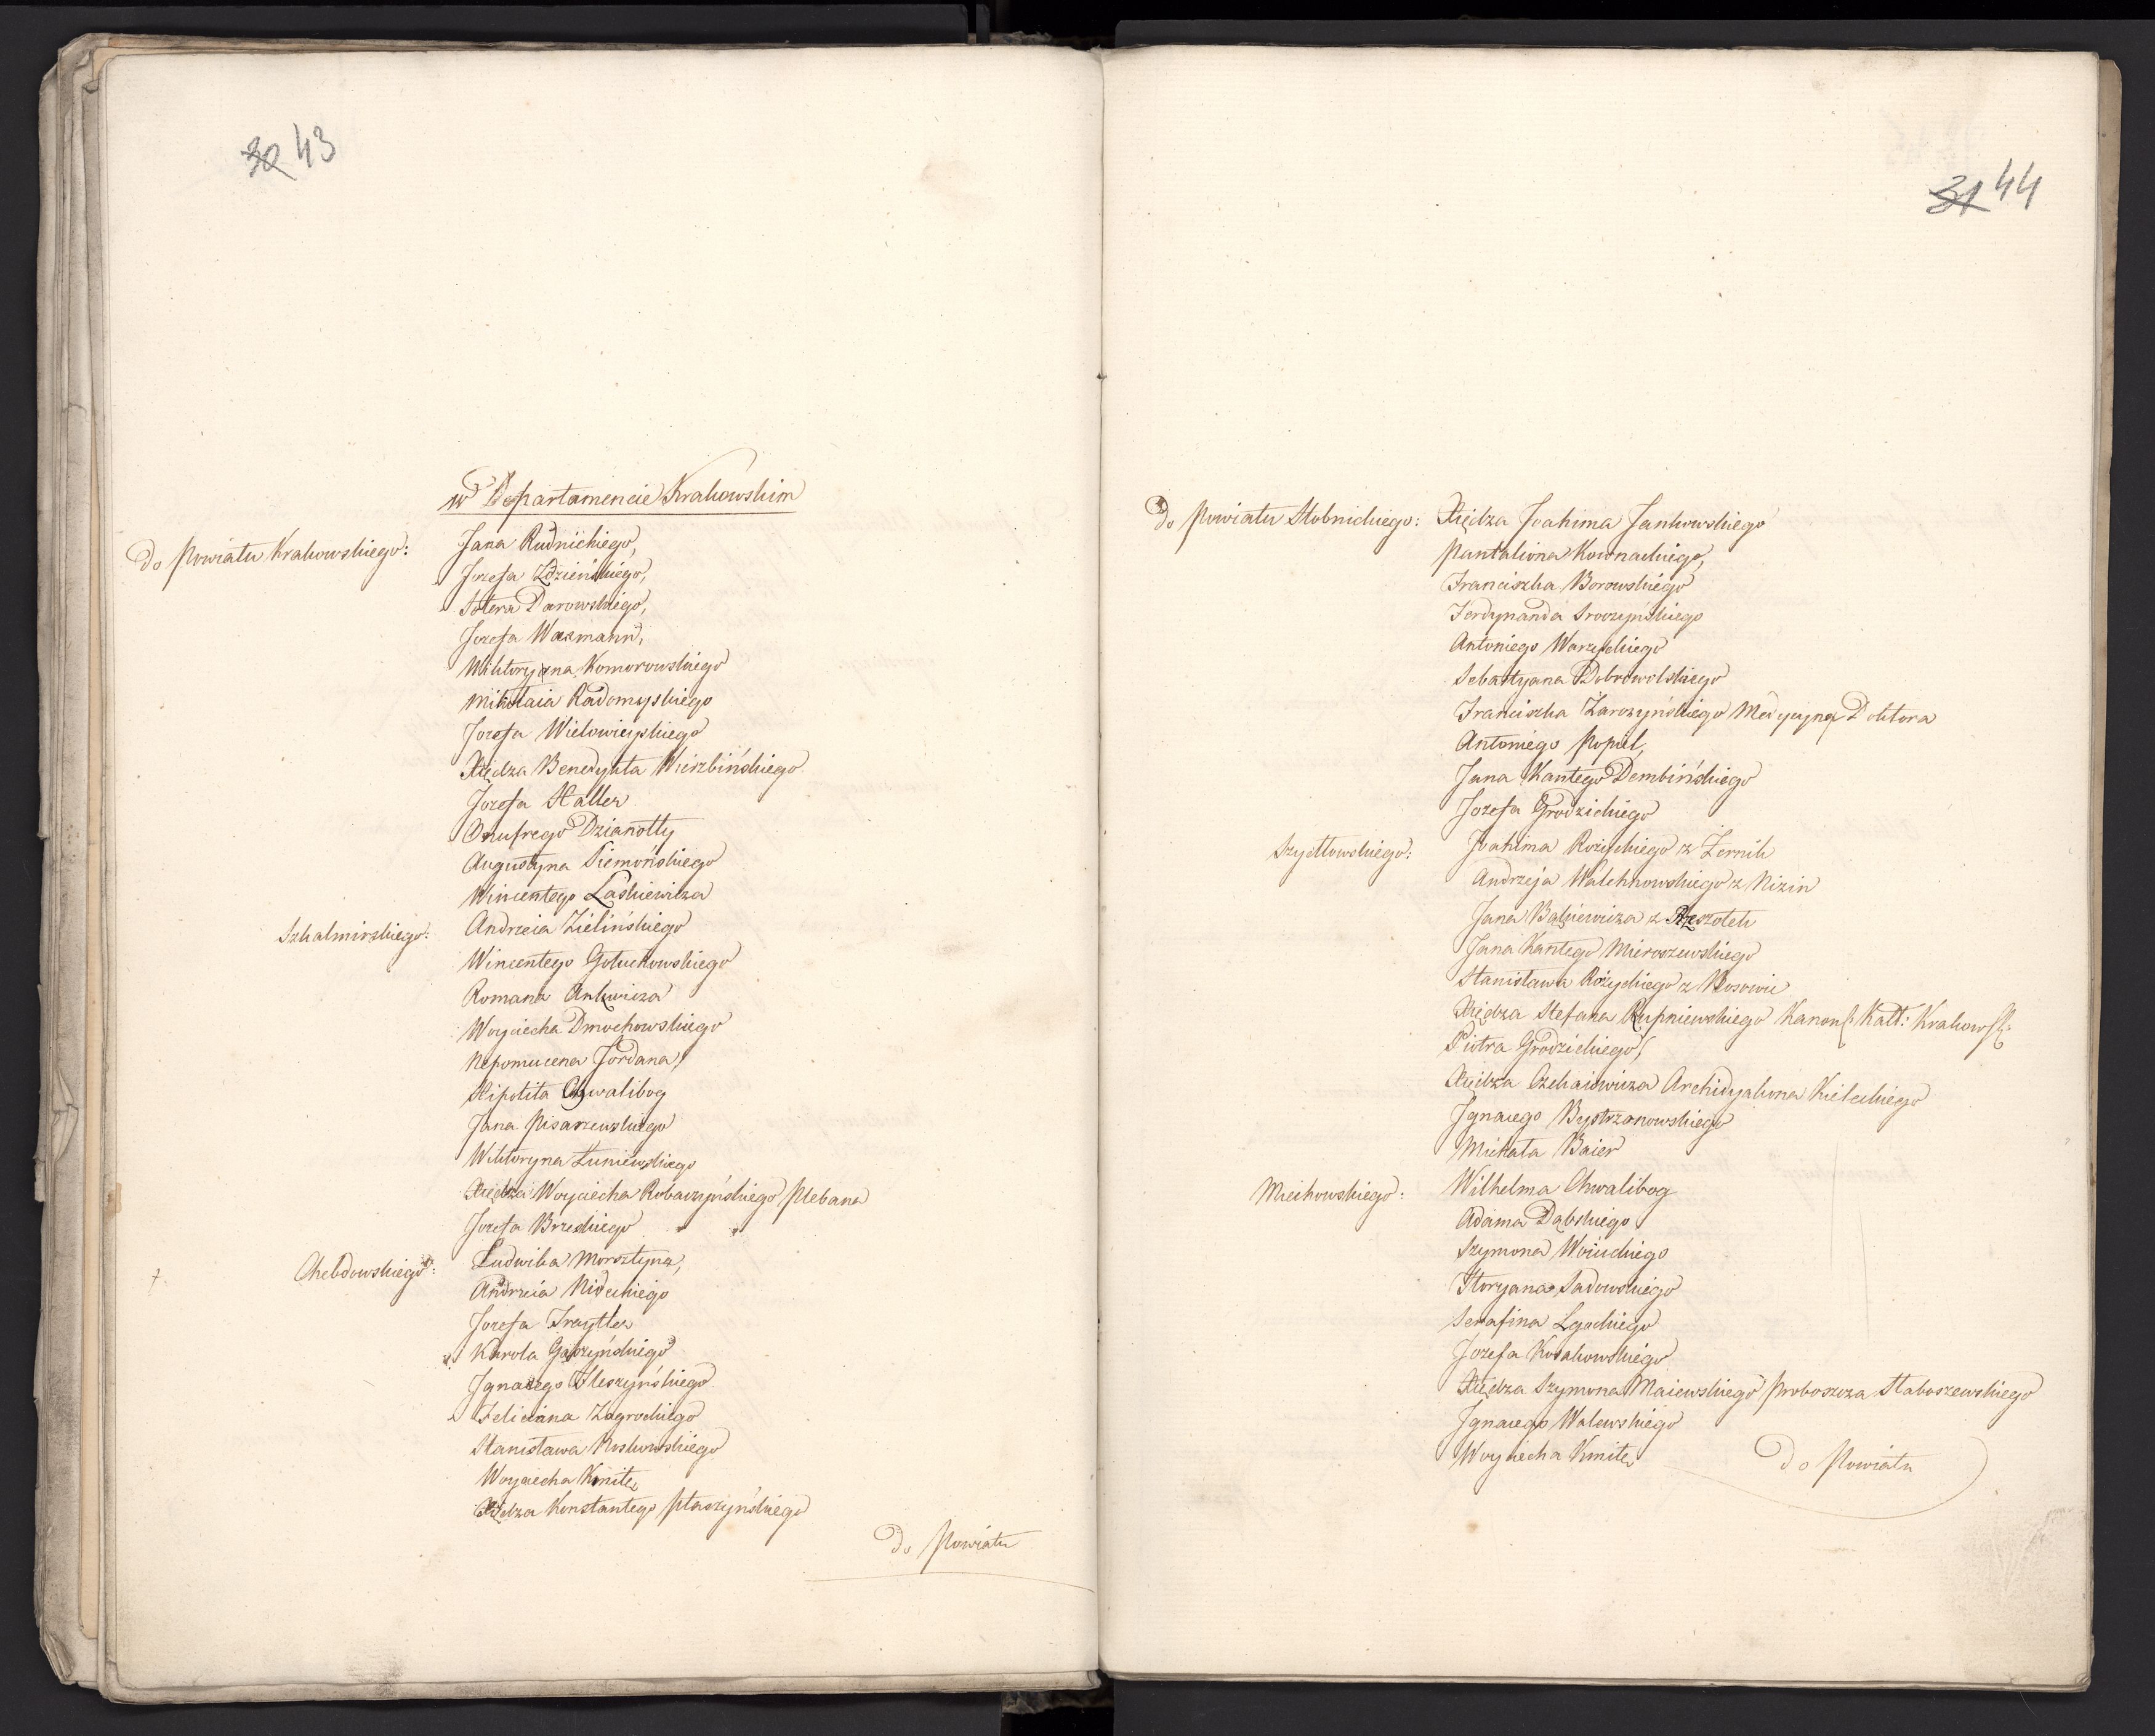 30 43
w Departamencie Krakowskim
Do Powiatu Krakowskiego: Jana Rudnickiego,
Jozefa Zdzieńskiego,
Sotera Darowskiego,
Jozefa Waxmann,
Wiktoryna Komorowskiego
Mikołaia Radomyskiego
Jozefa Wielowieyskiego
Xiędza Benedykta Wierzbińskiego
Jozefa Haller
Onufrego Dzianotty
Augustyna Siemońskiego
Wincentego Laskiewicza
Szkalmirskiego: Andrzeia Zielińskiego
Wincentego Gołuchowskiego
Romana Ankwicza
Woyciecha Dmochowskiego
Nepomucena Jordana,
Hipolita Chwalibog
Jana Pisarzewskiego
Wiktoryna Łuniewskiego
Xiędza Woyciecha Robaczyńskiego Plebana
Jozefa Brzeskiego
Chebdowskiego: Ludwika Morsztyna,
Andrzeia Nideckiego
Jozefa Traytler
Karola Gaszyńskiego
Ignacego
Feliciana Zagrockiego
Stanisława
Woyciecha Kmite
Xiędza Konstantego Ptaszyńskiego
Do Powiatu
31 44
Do Powiatu Stobnickiego: Xiędza Joahima Jankowskiego
Pantaliona Kownackiego,
Franciszka Borowskiego
Ferdynanda Sroczyńskiego
Antoniego Warzyckiego
Sebastyana Dobrowolskiego
Franciszka Zarczyńskiego Medycyny Doktora
Antoniego Popiel,
Jana Kantego Dembińskiego
Jozefa Grodzickiego
Szydłowskiego: Joahima Rożyckiego z Żernik
Andrzeja Walchnowskiego z Nizin
Jana Bąkiewicza z
Jana Kantego Mieroszewskiego
Stanisława Rożyckiego z
Xiędza Stefana Rupniewskiego Kanon: Katt: Krakowsk:
Piotra Grodzickiego,
Xiędza Czekaiewicza Archidyakona Kieleckiego
Ignacego Bystrzanowskiego
Michała Baier
Miechowskiego: Wilhelma Chwalibog
Adama Dąbskiego
Szymona Woiuckiego
Floryana Sadowskiego
Serafina Lgockiego
Jozefa Kosakowskiego
Xiędza Szymona Maiewskiego Proboszcza Słaboszewskiego
Ignacego Walewskiego
Woyciecha Kmite
Do Powiatu